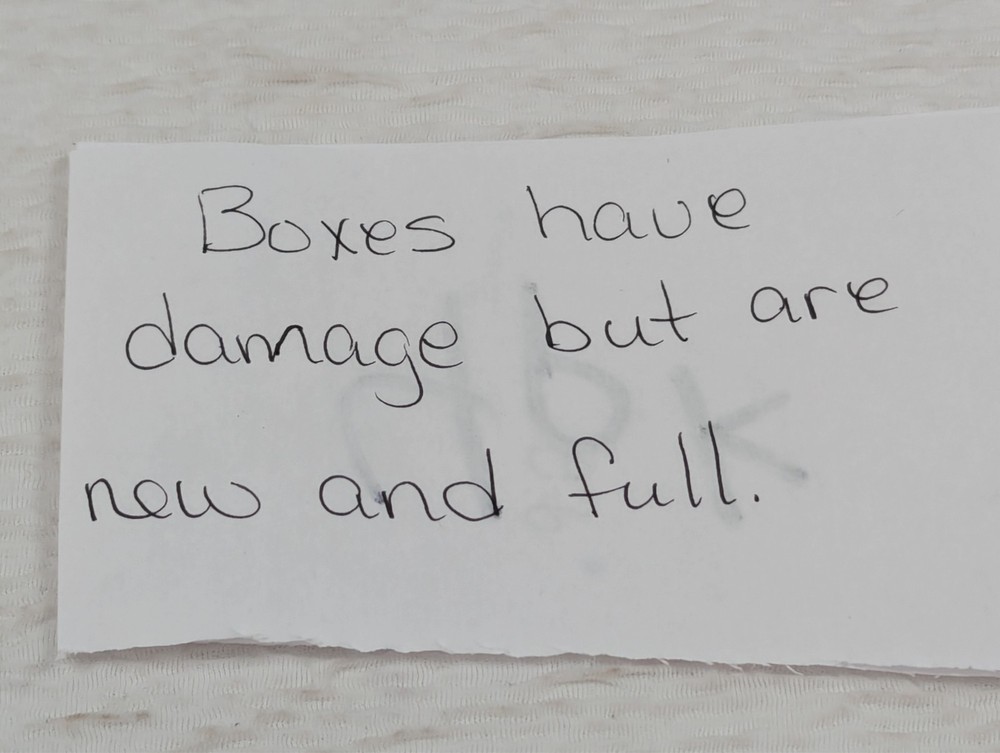 Boxes have
damage but are
new and full.